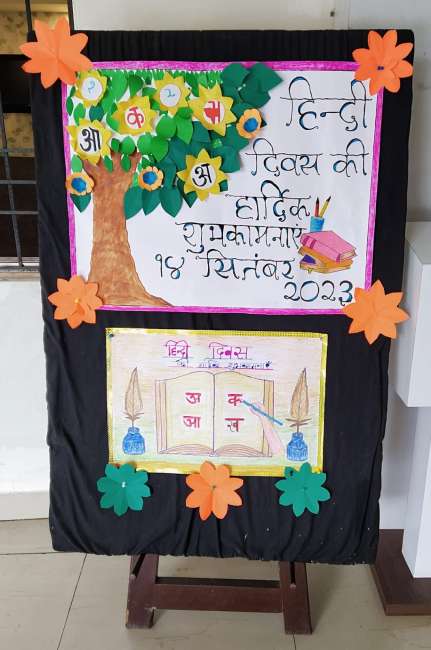 २
क
आ
अ
हिन्दी
दिवस की
हार्दिक
शुभकामनाएं
१४ सितंबर
२०२३
हिन्दी दिवस
की हार्दिक शुभकामनाएं
अ क
आ ख